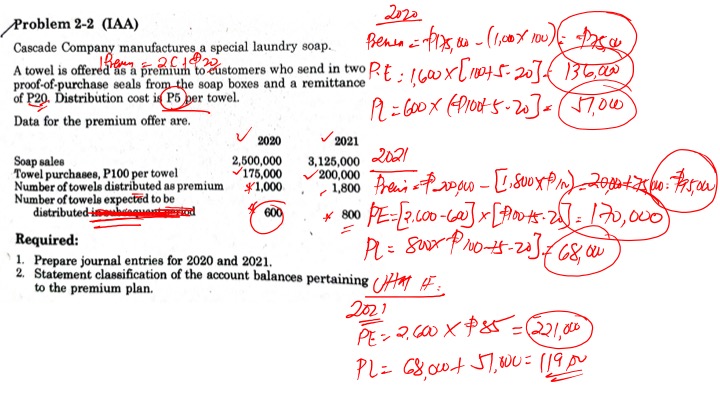 Problem 2-2 (IAA)
Cascade Company manufactures a special laundry soap.
1 Prem = 2C + P20
A towel is offered as a premium to customers who send in two
proof-of-purchase seals from the soap boxes and a remittance
of P20. Distribution cost is P5 per towel.
Data for the premium offer are.
2020 2021
Soap sales 2,500,000 3,125,000
Towel purchases, P100 per towel 175,000 200,000
Number of towels distributed as premium 1,000 1,800
Number of towels expected to be
distributed in subsequent period 600 800
Required:
1. Prepare journal entries for 2020 and 2021.
2. Statement classification of the account balances pertaining
to the premium plan.
2020
= P175,000 - (1,000 X 100) = P75,000
P.E = 1,600 X [100+5-20] = 136,000
PL = 600 X (P100+5-20] = 51,000
2021
= P200,000 - [1,800 X P100] = 20,000+75,000 = P95,000
PE = [2,600-600] X [P100+5-20] = 170,000
PL = 800 X P100+5-20] = 68,000
2021
PE = 2,600 X P85 = 221,000
PL = 68,000 + 51,000 = 119,000